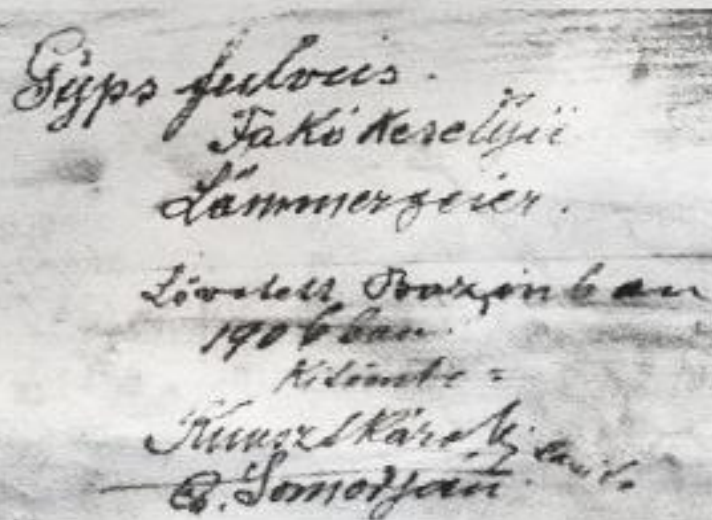 Gyps fulvus.
Fakó keselyü
Lämmergeier.
Lövetett Bozinban
1906ban.
Kitömte =
Kunszt Károly
Somorjan.